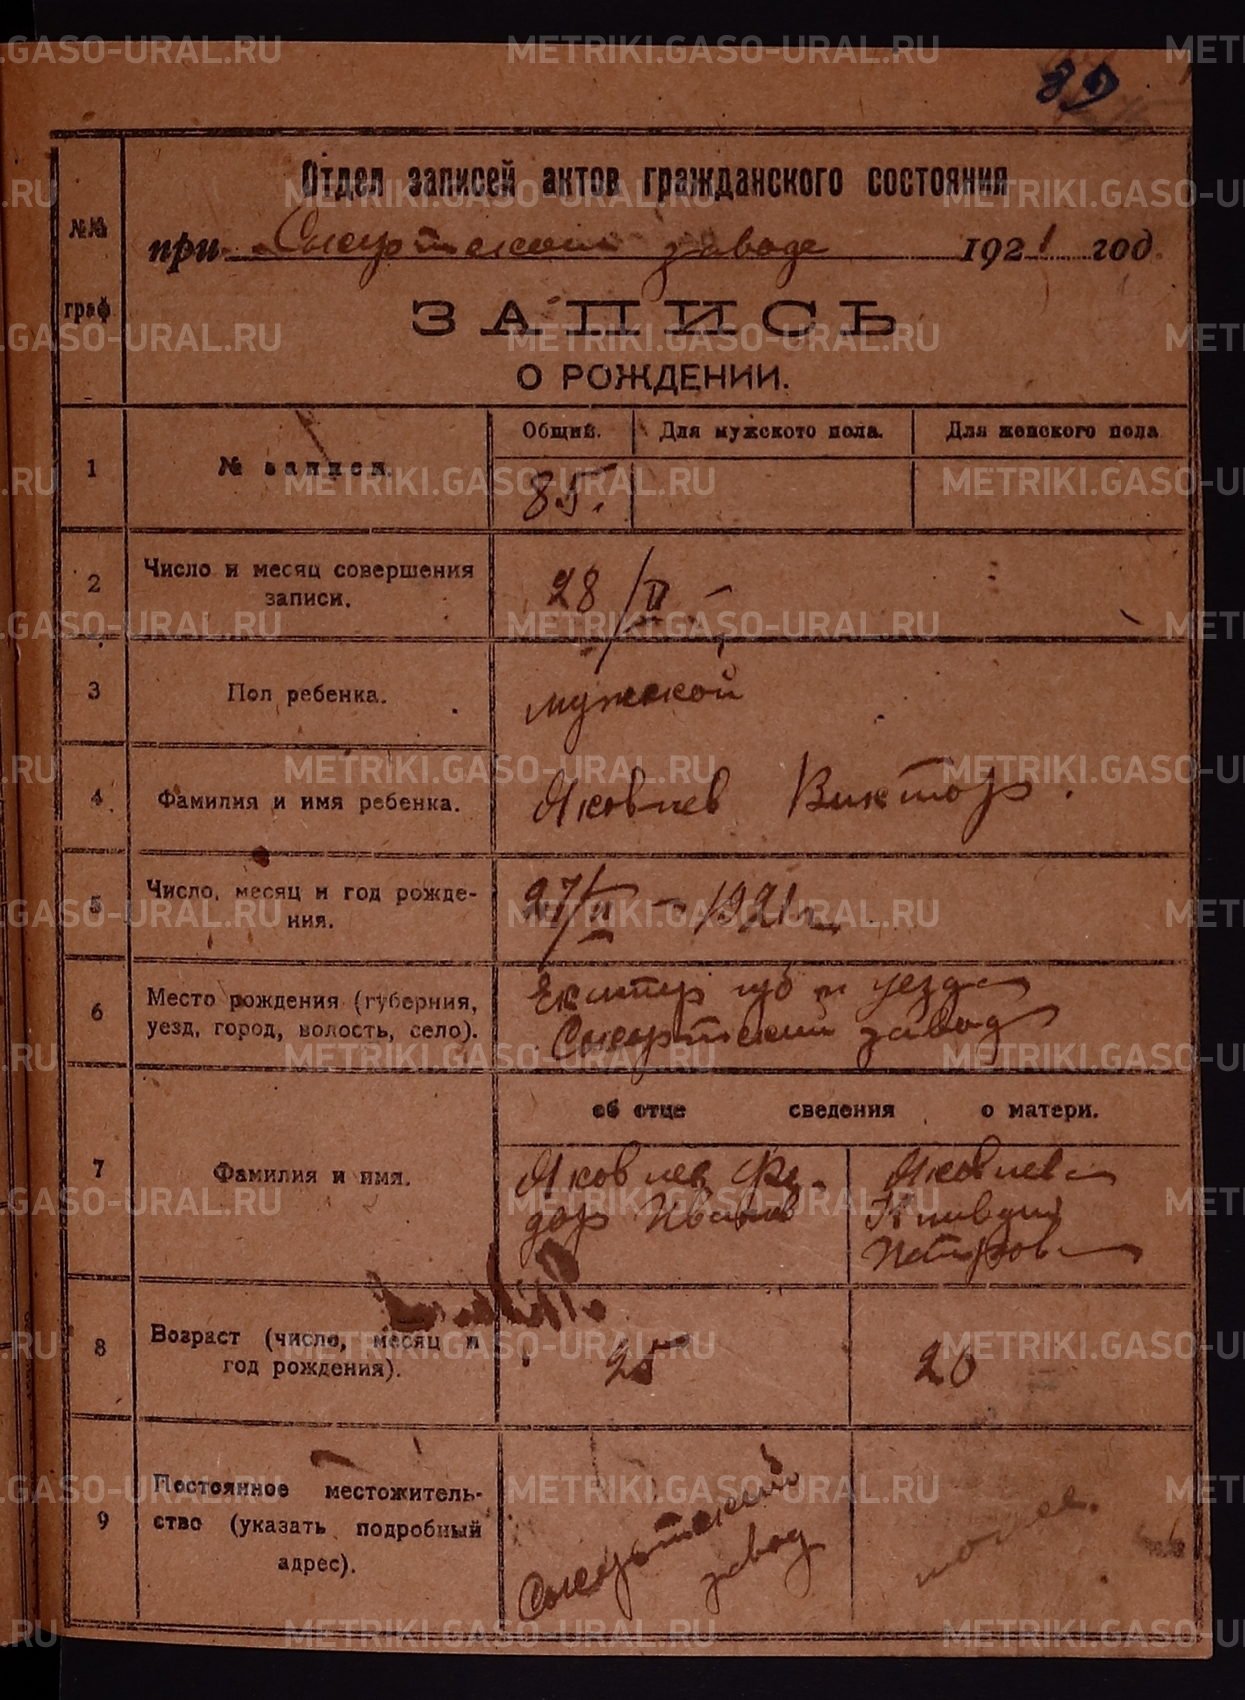 89
Отдел записей актов гражданского состояния
№№ граф
при Сысертском заводе 1921 год.
ЗАПИСЬ
О РОЖДЕНИИ.
Общий. Для мужского пола. Для женского пола
1 № записи. 85.
2 Число и месяц совершения записи. 28/II –
3 Пол ребенка. мужской
4 Фамилия и имя ребенка. Яковлев Виктор.
5 Число, месяц и год рождения. 27/II – 1921 г.
6 Место рождения (губерния, уезд, город, волость, село).
Екатер губ и уезда
Сысертский завод
об отце сведения о матери.
7 Фамилия и имя.
Яковлев Фе-
дор Иванов
Яковлева
Клавдия
Петровна
8 Возраст (число, месяц и год рождения). 25 20
9 Постоянное местожитель-
ство (указать подробный
адрес).
Сысертский
завод
METRIKI.GASO-URAL.RU